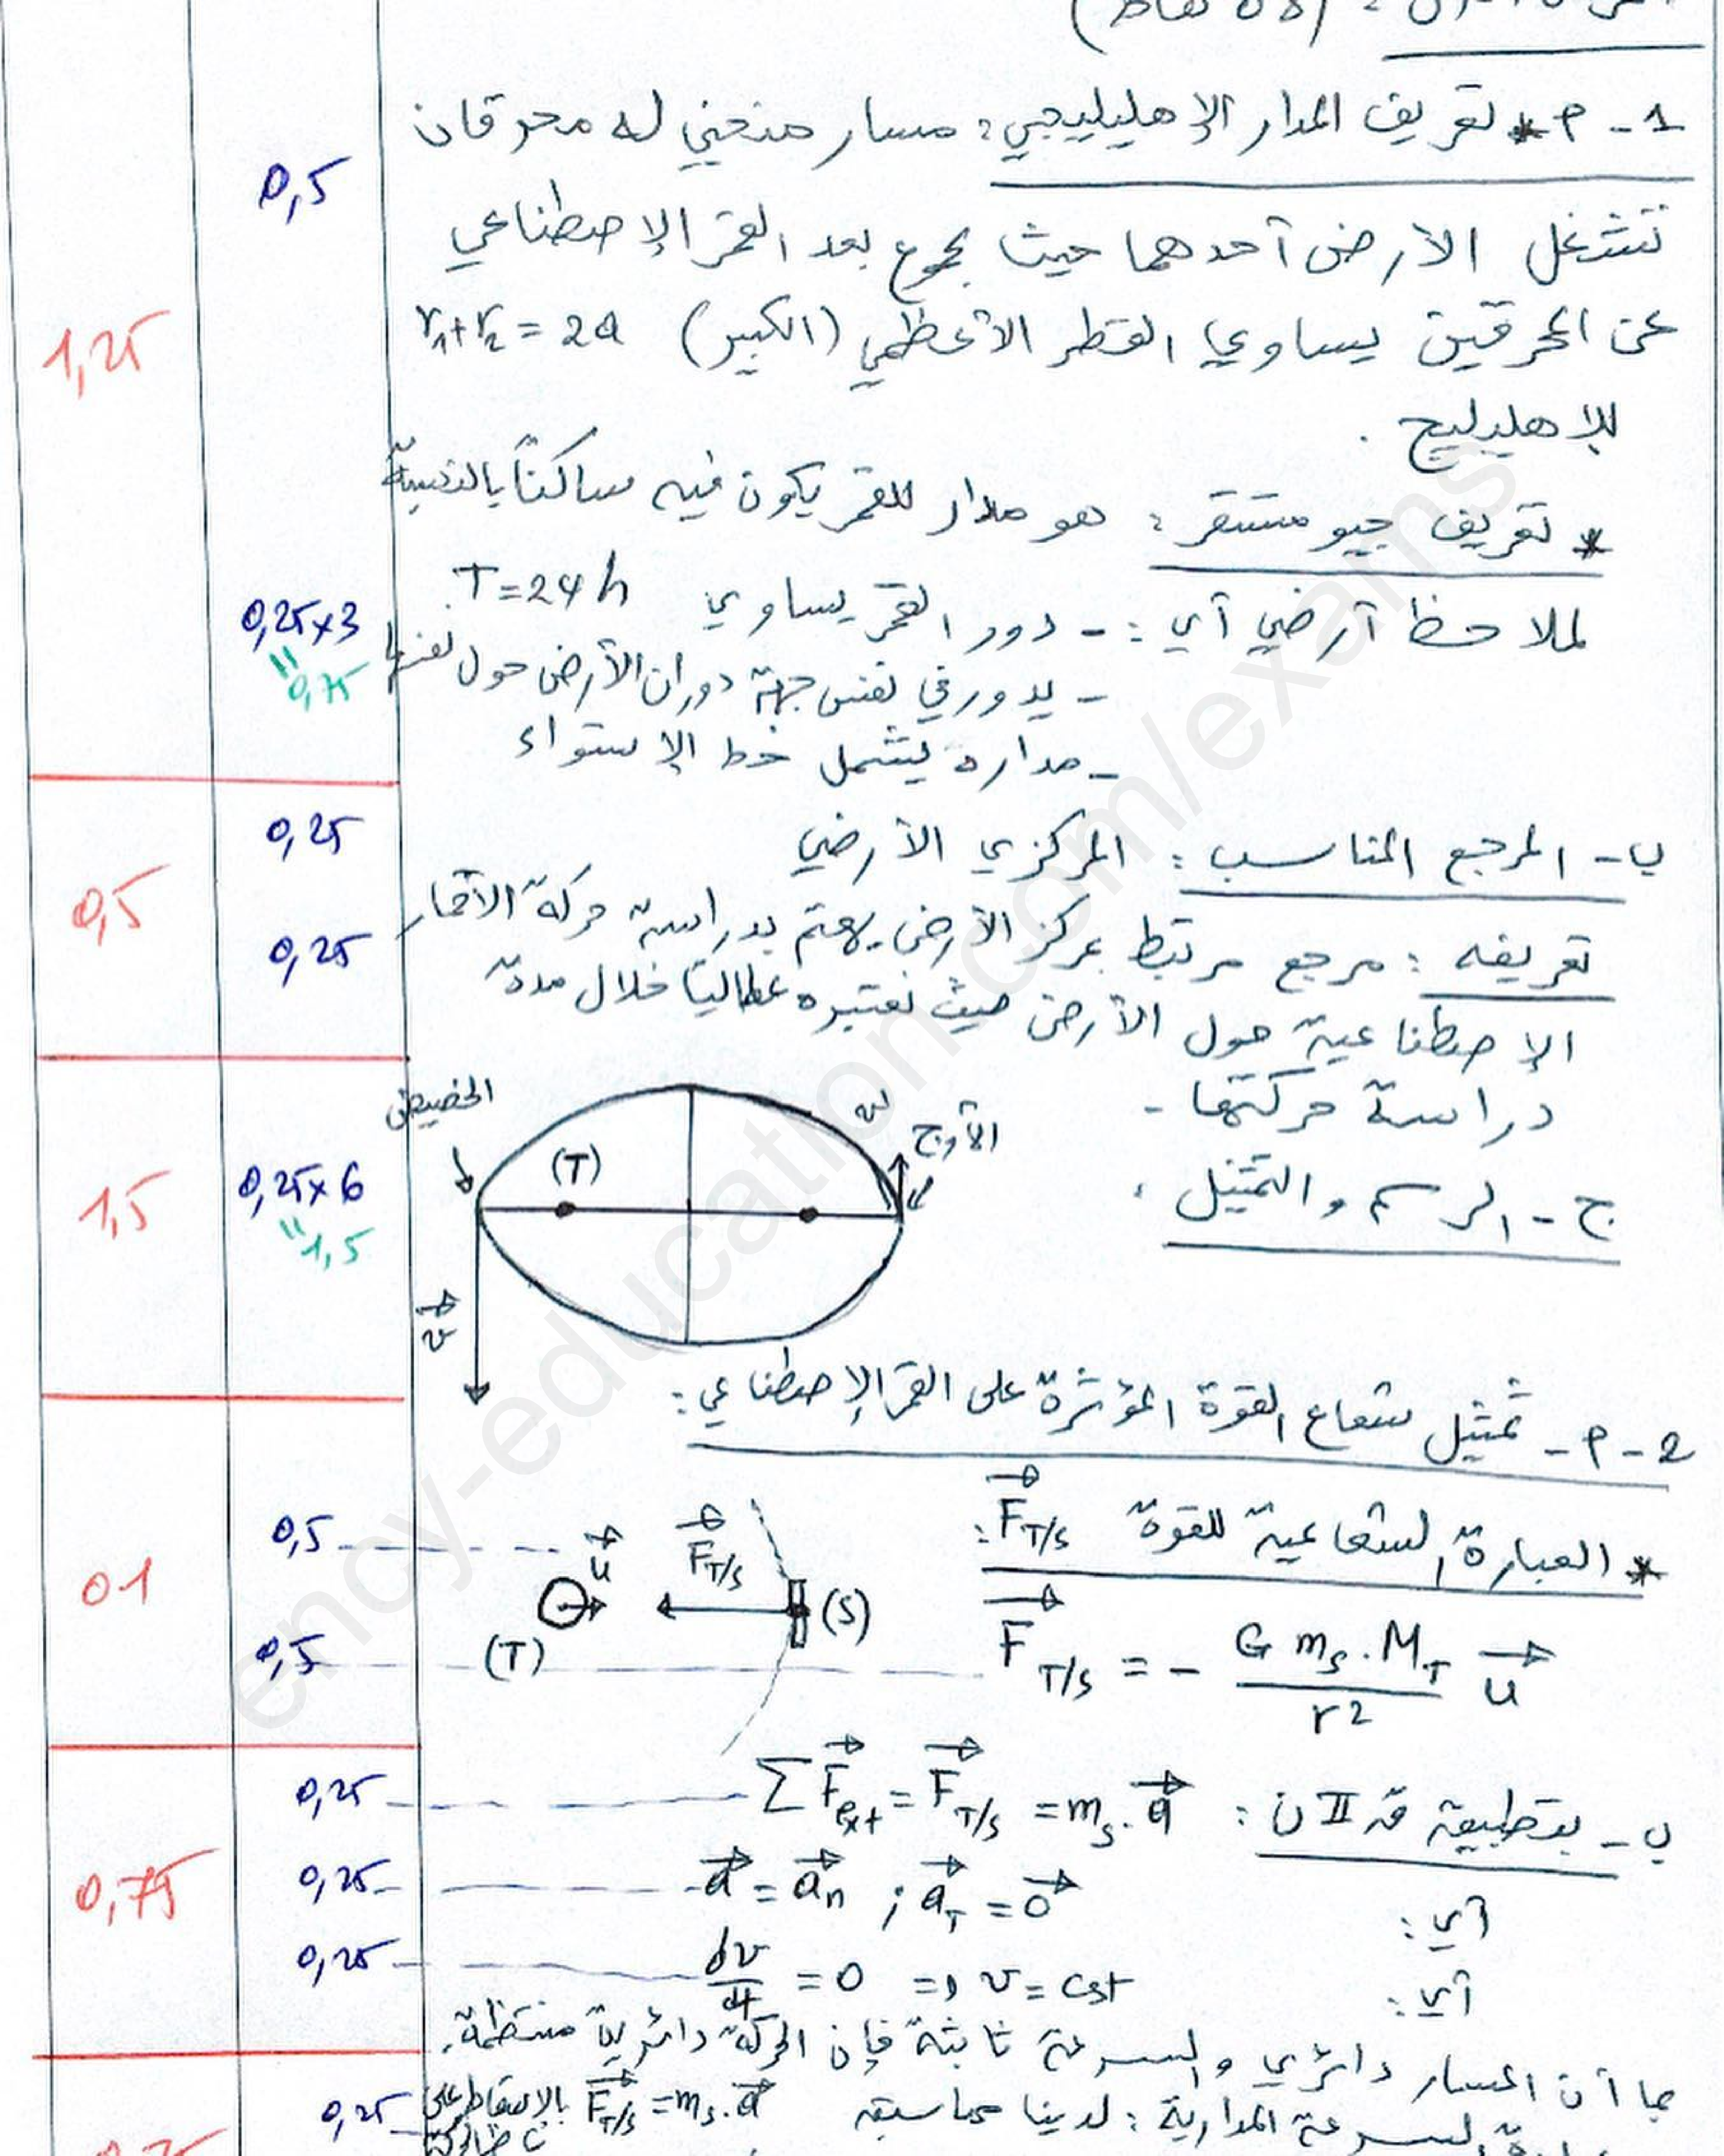 1 - م * تعريف المدار الإهليليجي: مسار منحني له محرقان
تنشغل الأرض أحدهما حيث مجموع بعد القمر الإصطناعي
عن المحرقين يساوي القطر الأعظمي (الكبير) r₁+r₂ = 2a
للإهليليج .
* تعريف جيو مستقر : هو مدار للقمر يكون فيه ساكناً بالنسبة
لملاحظ أرضي أي : - دور القمر يساوي T=24h
- يدور في نفس جهة دوران الأرض حول نفسها
- مداره يشمل خط الإستواء
0,5
1,25
0,25x3
"0,75
ب - المرجع المناسب : المركزي الأرضي
تعريفه : مرجع مرتبط بمركز الأرض يهتم بدراسة حركة الأقمار
الإصطناعية حول الأرض حيث نعتبره عطالياً خلال مدة
دراسة حركتها -
0,25
0,25
0,5
ج - الرسم والتمثيل :
الحضيض
الأوج
(T)
v⃗
v⃗
0,25x6
"1,5
1,5
2 - م - تمثيل شعاع القوة المؤثرة على القمر الإصطناعي :
* العبارة الشعاعية للقوة F⃗T/S :
u⃗ F⃗T/S
(T) (S)
F⃗T/S = - G mS . MT / r² u⃗
0,5
0,5
01
ب - بتطبيق قـ II ن : ΣF⃗ext = F⃗T/S = mS . a⃗
أي : a⃗ = a⃗n ; a⃗T = 0⃗
أي : dv/dt = 0 => v = cst
بما أن المسار دائري والسرعة ثابتة فإن الحركة دائرية منتظمة.
0,25
0,25
0,25
0,75
السرعة المدارية : لدينا مما سبق F⃗T/S = mS . a⃗ بالإسقاط على
0,25
ency-education.com/exams